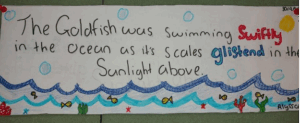 The Goldfish was swimming Swiftly
in the ocean as its scales glistend in the
Sunlight above.